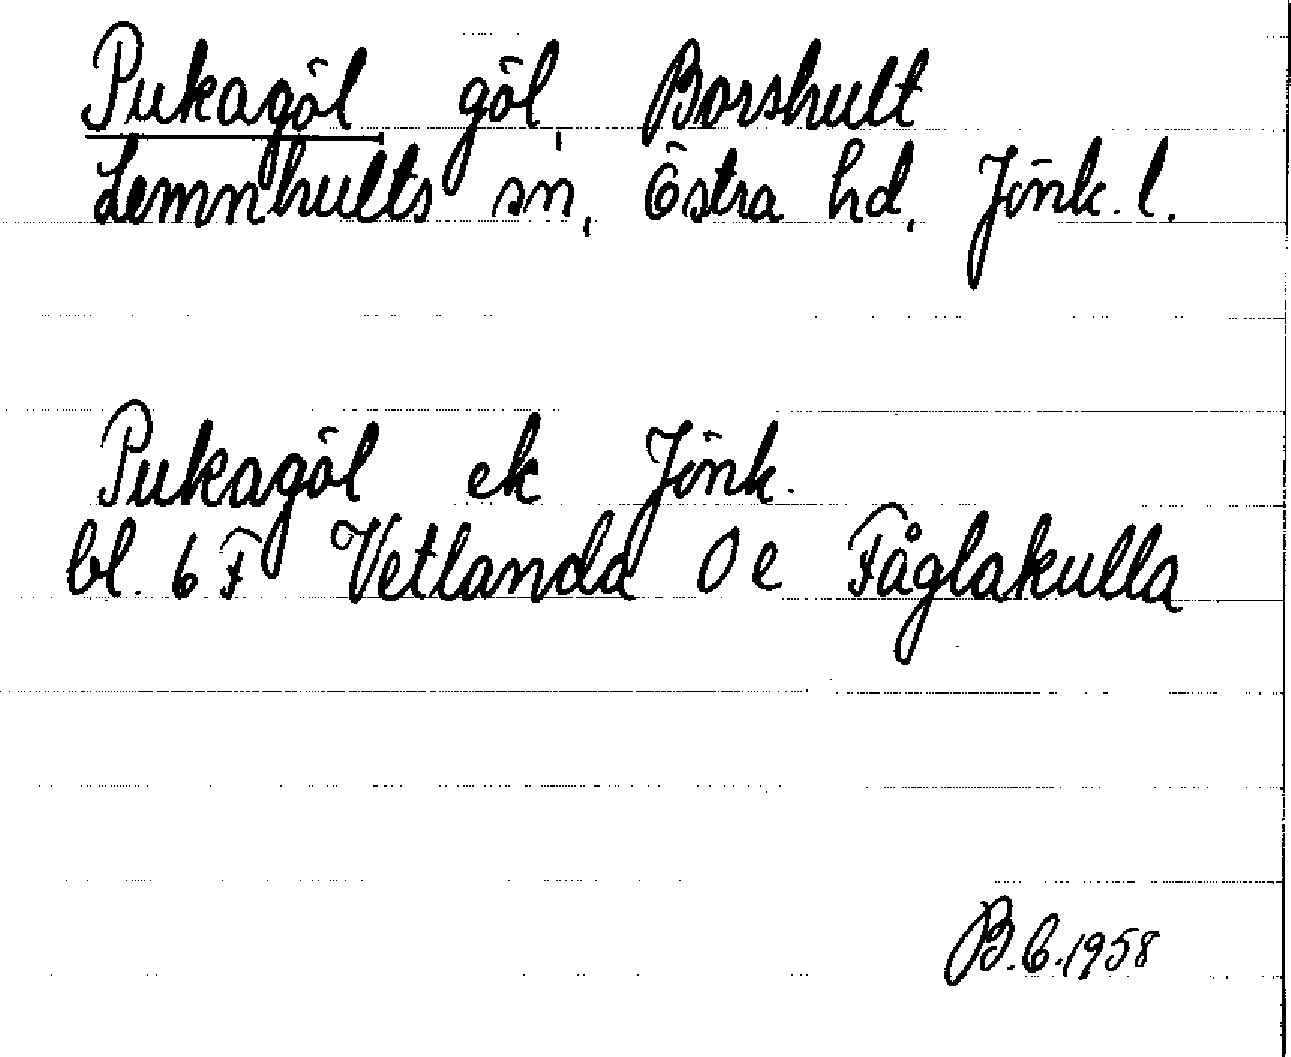 Pukagöl, göl, Borshult
Lemnhults sn, Östra hd, Jönk. l.
Pukagöl ek Jönk.
bl. 6 F Vetlanda 0 e Fåglakulla
B.C. 1958